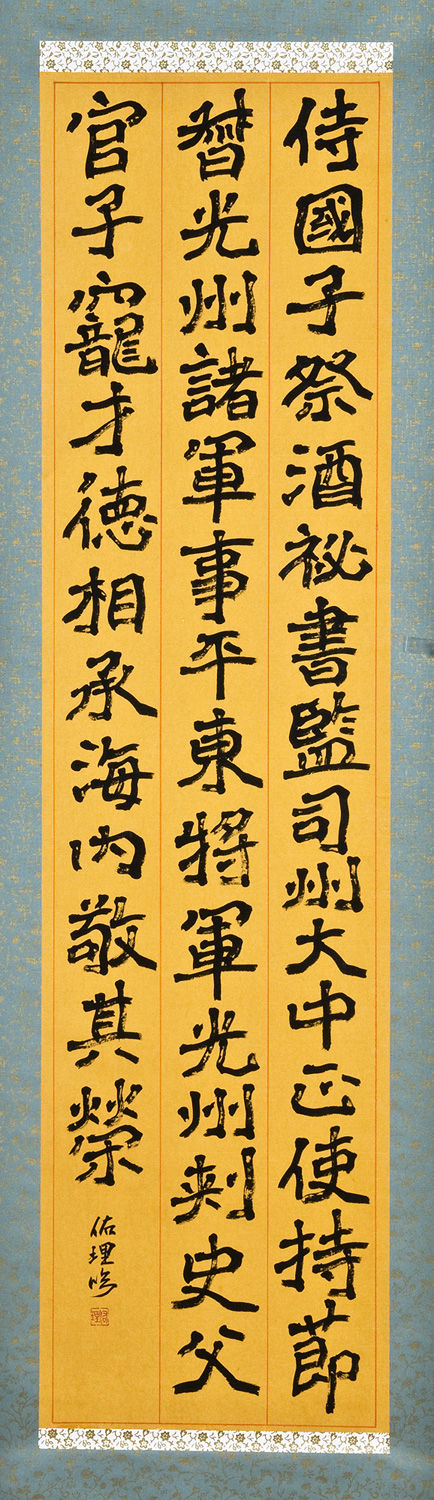 侍國子祭酒祕書監司州大中正使持節
督光州諸軍事平東將軍光州刺史父
官子寵才德相承海内敬其榮
佑理